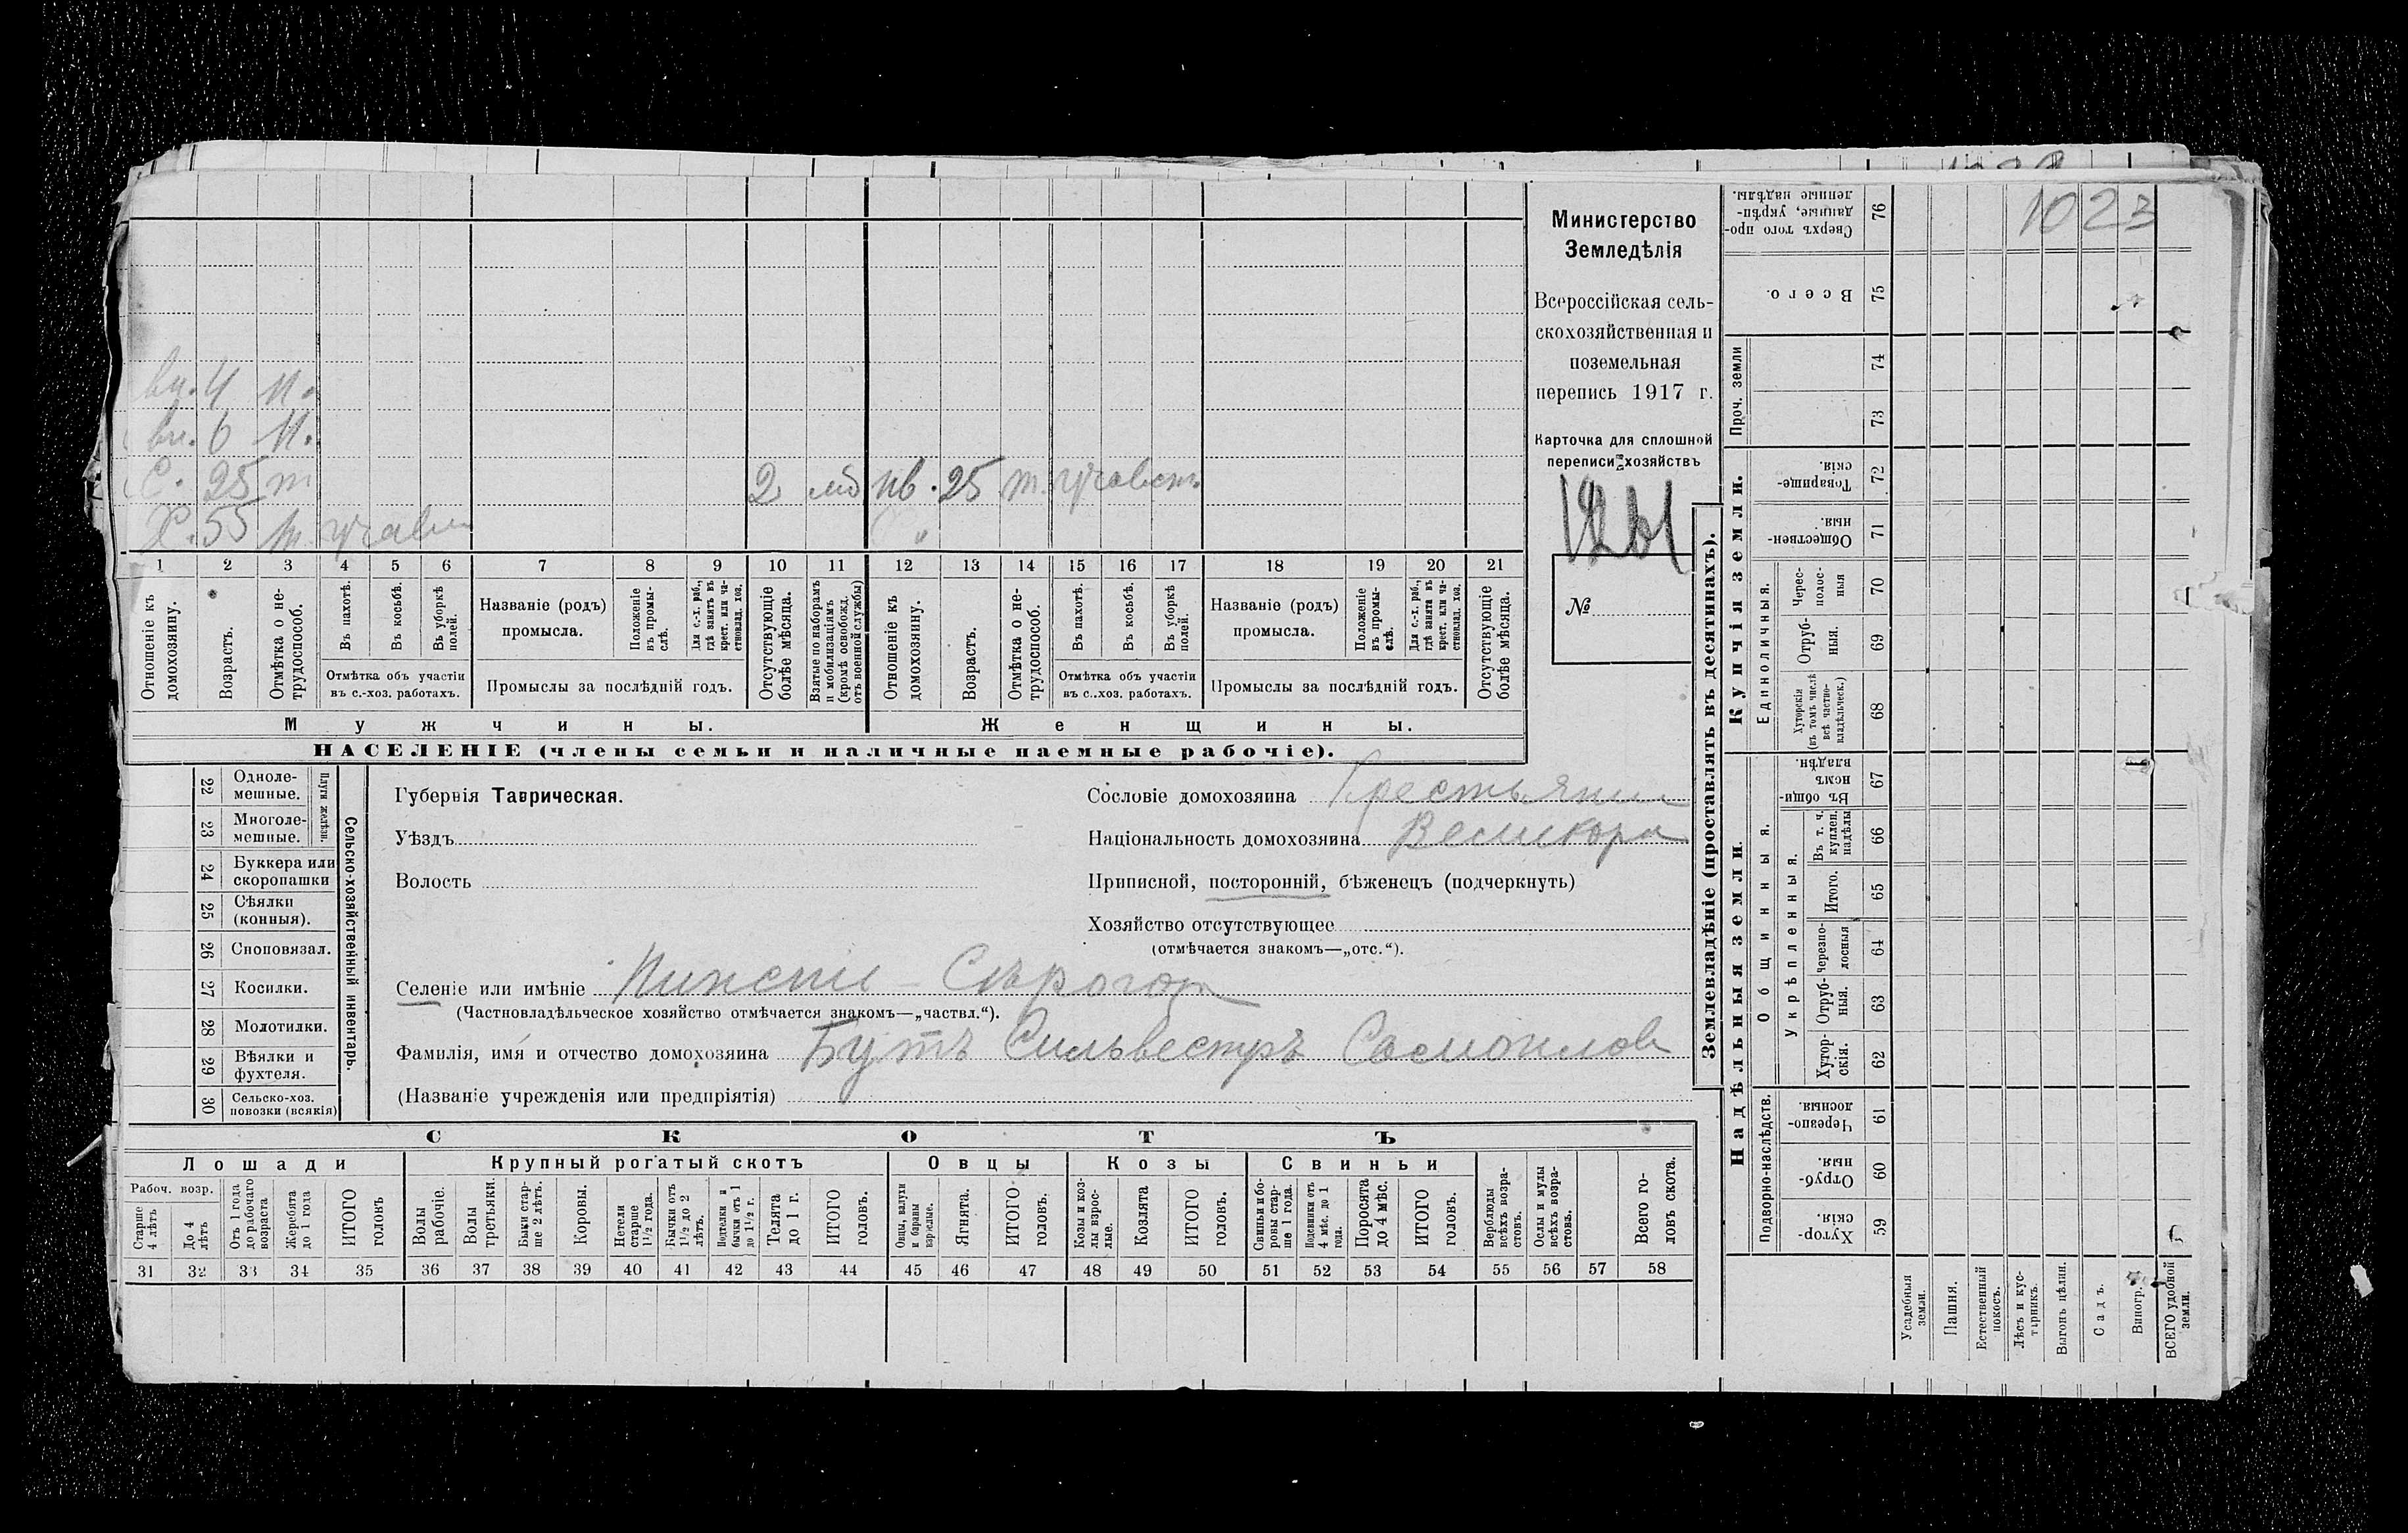 вн. 4 н.
вн. 6 н.
С. 25 т 2 мб нв. 25 т.
Х. 55 т.
1 2 3 4 5 6 7 8 9 10 11 12 13 14 15 16 17 18 19 20 21
Отношеніе къ домохозяину.
Возрастъ.
Отмѣтка о не-
трудоспособ.
Въ пахотѣ.
Въ косьбѣ.
Въ уборкѣ
полей.
Отмѣтка объ участіи
въ с.-хоз. работахъ.
Названіе (родъ)
промысла.
Положеніе
въ промы-
слѣ.
Для с.-х. раб.,
гдѣ занятъ въ
крест. или ча-
стновлад. хоз.
Промыслы за послѣдній годъ.
Отсутствующіе
болѣе мѣсяца.
Взятые по наборамъ
и мобилизаціямъ
(кромѣ освобожд.
отъ военной службы)
Отношеніе къ
домохозяину.
Возрастъ.
Отмѣтка о не-
трудоспособ.
Въ пахотѣ.
Въ косьбѣ.
Въ уборкѣ
полей.
Отмѣтка объ участіи
въ с.-хоз. работахъ.
Названіе (родъ)
промысла.
Положеніе
въ промы-
слѣ.
Для с.-х. раб.,
гдѣ занята въ
крест. или ча-
стновлад. хоз.
Промыслы за послѣдній годъ.
Отсутствующіе
болѣе мѣсяца.
Мужчины. Женщины.
НАСЕЛЕНІЕ (члены семьи и наличные наемные рабочіе).
Министерство
Земледѣлія
Всероссійская сель-
скохозяйственная и
поземельная
перепись 1917 г.
Карточка для сплошной
переписи хозяйствъ
№
22 Одноле-
мешные.
23 Многоле-
мешные.
Плуги желѣзн.
24 Буккера или
скоропашки
25 Сѣялки
(конныя).
26 Сноповязал.
27 Косилки.
28 Молотилки.
29 Вѣялки и
фухтеля.
30 Сельско-хоз.
повозки (всякія)
Сельско-хозяйственный инвентарь.
Губернія Таврическая.
Уѣздъ
Волость
Сословіе домохозяина Крестьянин
Національность домохозяина Великорс
Приписной, посторонній, бѣженецъ (подчеркнуть)
Хозяйство отсутствующее
(отмѣчается знакомъ—„отс.“).
Селеніе или имѣніе Нижніе - Сѣрогоз
(Частновладѣльческое хозяйство отмѣчается знакомъ—„частвл.“).
Фамилія, имя и отчество домохозяина Бутъ Сильвестръ
(Названіе учрежденія или предпріятія)
СКОТЪ
Лошади Крупный рогатый скотъ Овцы Козы Свиньи
Рабоч. возр.
Старше
4 лѣтъ
До 4
лѣтъ
Отъ 1 года
до рабочаго
возраста
Жеребята
до 1 года
ИТОГО
головъ
Волы
рабочіе.
Волы
третьяки.
Быки стар-
ше 2 лѣтъ.
Коровы.
Нетели
старше
1½ года.
Бычки отъ
1½ до 2
лѣтъ.
Подтелки и
бычки отъ 1
до 1½ г.
Телята
до 1 г.
ИТОГО
головъ.
Овцы, валухи
и бараны
взрослые.
Ягнята.
ИТОГО
головъ.
Козы и коз-
лы взрос-
лые.
Козлята
ИТОГО
головъ.
Свиньи и бо-
ровы стар-
ше 1 года.
Подсвинки отъ
4 мѣс. до 1
года.
Поросята
до 4 мѣс.
ИТОГО
головъ.
Верблюды
всѣхъ возра-
стовъ.
Ослы и мулы
всѣхъ возра-
стовъ.
Всего го-
ловъ скота.
31 32 33 34 35 36 37 38 39 40 41 42 43 44 45 46 47 48 49 50 51 52 53 54 55 56 57 58
1023
Землевладѣніе (проставлять въ десятинахъ).
Надѣльныя земли.
Купчія земли.
Проч. земли
Сверхъ того про-
данные, укрѣп-
ленные надѣлы.
76
Всего.
75
74
73
Товарище-
скія.
72
Обществен-
ныя.
71
Единоличныя.
Черес-
полос-
ныя
70
Отруб-
ныя.
69
Хуторскія
(въ томъ числѣ
всѣ частно-
владѣльческ.)
68
Общинныя.
Въ общи-
номъ
владѣн.
67
Укрѣпленныя.
Въ т. ч.
куплен.
надѣлы
66
Итого.
65
Черезпо-
лосныя
64
Отруб-
ныя.
63
Хутор-
скія.
62
Подворно-наслѣдств.
Черезпо-
лосныя.
61
Отруб-
ныя.
60
Хутор-
скія.
59
Усадебныя
земли.
Пашня.
Естественный
покосъ.
Лѣсъ и кус-
тарникъ.
Выгонъ цѣлин.
Садъ.
Виногр.
ВСЕГО удобной
земли.